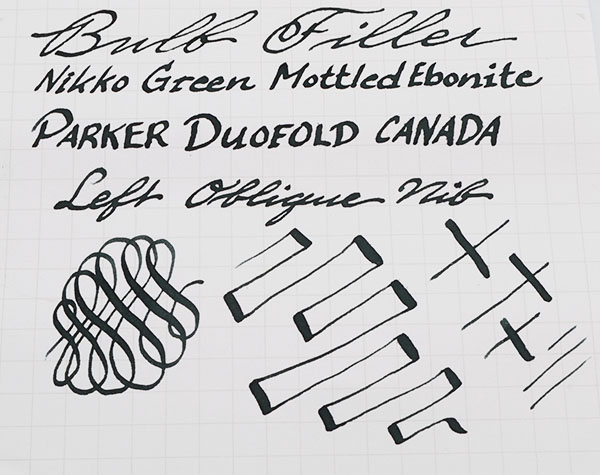 Bulb Filler
Nikko Green Mottled Ebonite
PARKER DUOFOLD CANADA
Left Oblique Nib